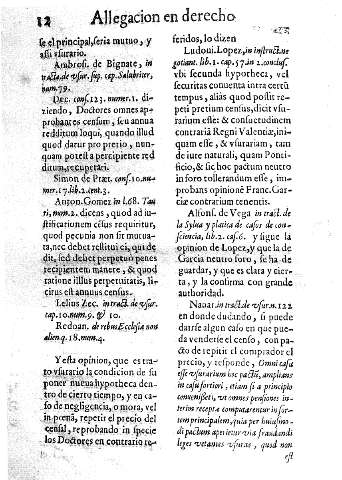 12 Allegacion en derecho
se el principal, seria mutuo, y
assi vsurario.
Ambros. de Bignate, in
tracta. de vsur. sup. cap. Salubriter,
num. 79.
Dec. cons. 123. numer. 1. di-
ziendo, Doctores omnes ap-
probantes censum, seu annua
redditum loqui, quando illud
quod datur pro pretio, nun-
quam potest a percipiente red
ditum, recuperari.
Simon de Præt. cons. 10. nu-
mer. 17. lib. 2. ent. 3.
Anton. Gomez in l. 68. Tau
ri, num. 2. dicens, quod ad iu-
stificationem eius requiritur,
quod pecunia non sit mutua-
ta, nec debet restitui ei, qui de
dit, sed debet perpetuò penes
recipientem manere, & quod
ratione illius perpetuitatis, li-
citus est annuus census.
Lelius Zec. in tract. de vsur.
cap. 10. num. 9. & 10.
Redoan. de rebus Ecclesiæ non
alien. q. 18. num. 4.
Y esta opinion, que es tra-
to vsurario la condicion de su
poner nueua hypotheca dentro
de cierto tiempo, y en ca-
so de negligencia, o mora, vel
in pœna, repetir el precio del
censal, reprobando in specie
los Doctores en contrario re-
feridos, lo dizen
Ludoui. Lopez, in instruct. ne
gotiant. lib. 1. cap. 57. in 2. conclus.
vbi secunda hypotheca, vel
securitas conuenta intra certũ
tempus, alias quod possit repe-
ti pretium census, dicit vsu-
rarium esse: & consuetudinem
contrariã Regni Valentiæ, ini-
quam esse, & vsurariam, tam
de iure naturali, quam Ponti-
ficio, & sic hoc pactum neutro
in foro tollerandum esse, im-
probans opinionẽ Franc. Gar-
cia contrarium tenentis.
Alfons. de Vega in tract. de
la Sylua y platica de casos de con-
sciencia, lib. 2. cas. 6. y sigue la
opinion de Lopez, y que la de
Garcia neutro foro, se ha de
guardar, y que es clara y cier-
ta, y la confirma con grande
authoridad.
Nauar. in tract. de vsur. n. 122
en donde ducando, si puede
darse algun caso en que pue-
da venderse el censo, con pa-
cto de repetir el comprador el
precio, y responde, Omni casu
esse vsurarium hoc pactũ, amplians
in casu fortiori, etiam si a principio
conuenisset, vt omnes pensiones in-
terim receptæ computarentur in for-
tem principalem, quia per huiusmo-
di pactum aperitur via fraudandi
leges vetantes vsuras, quod non
est